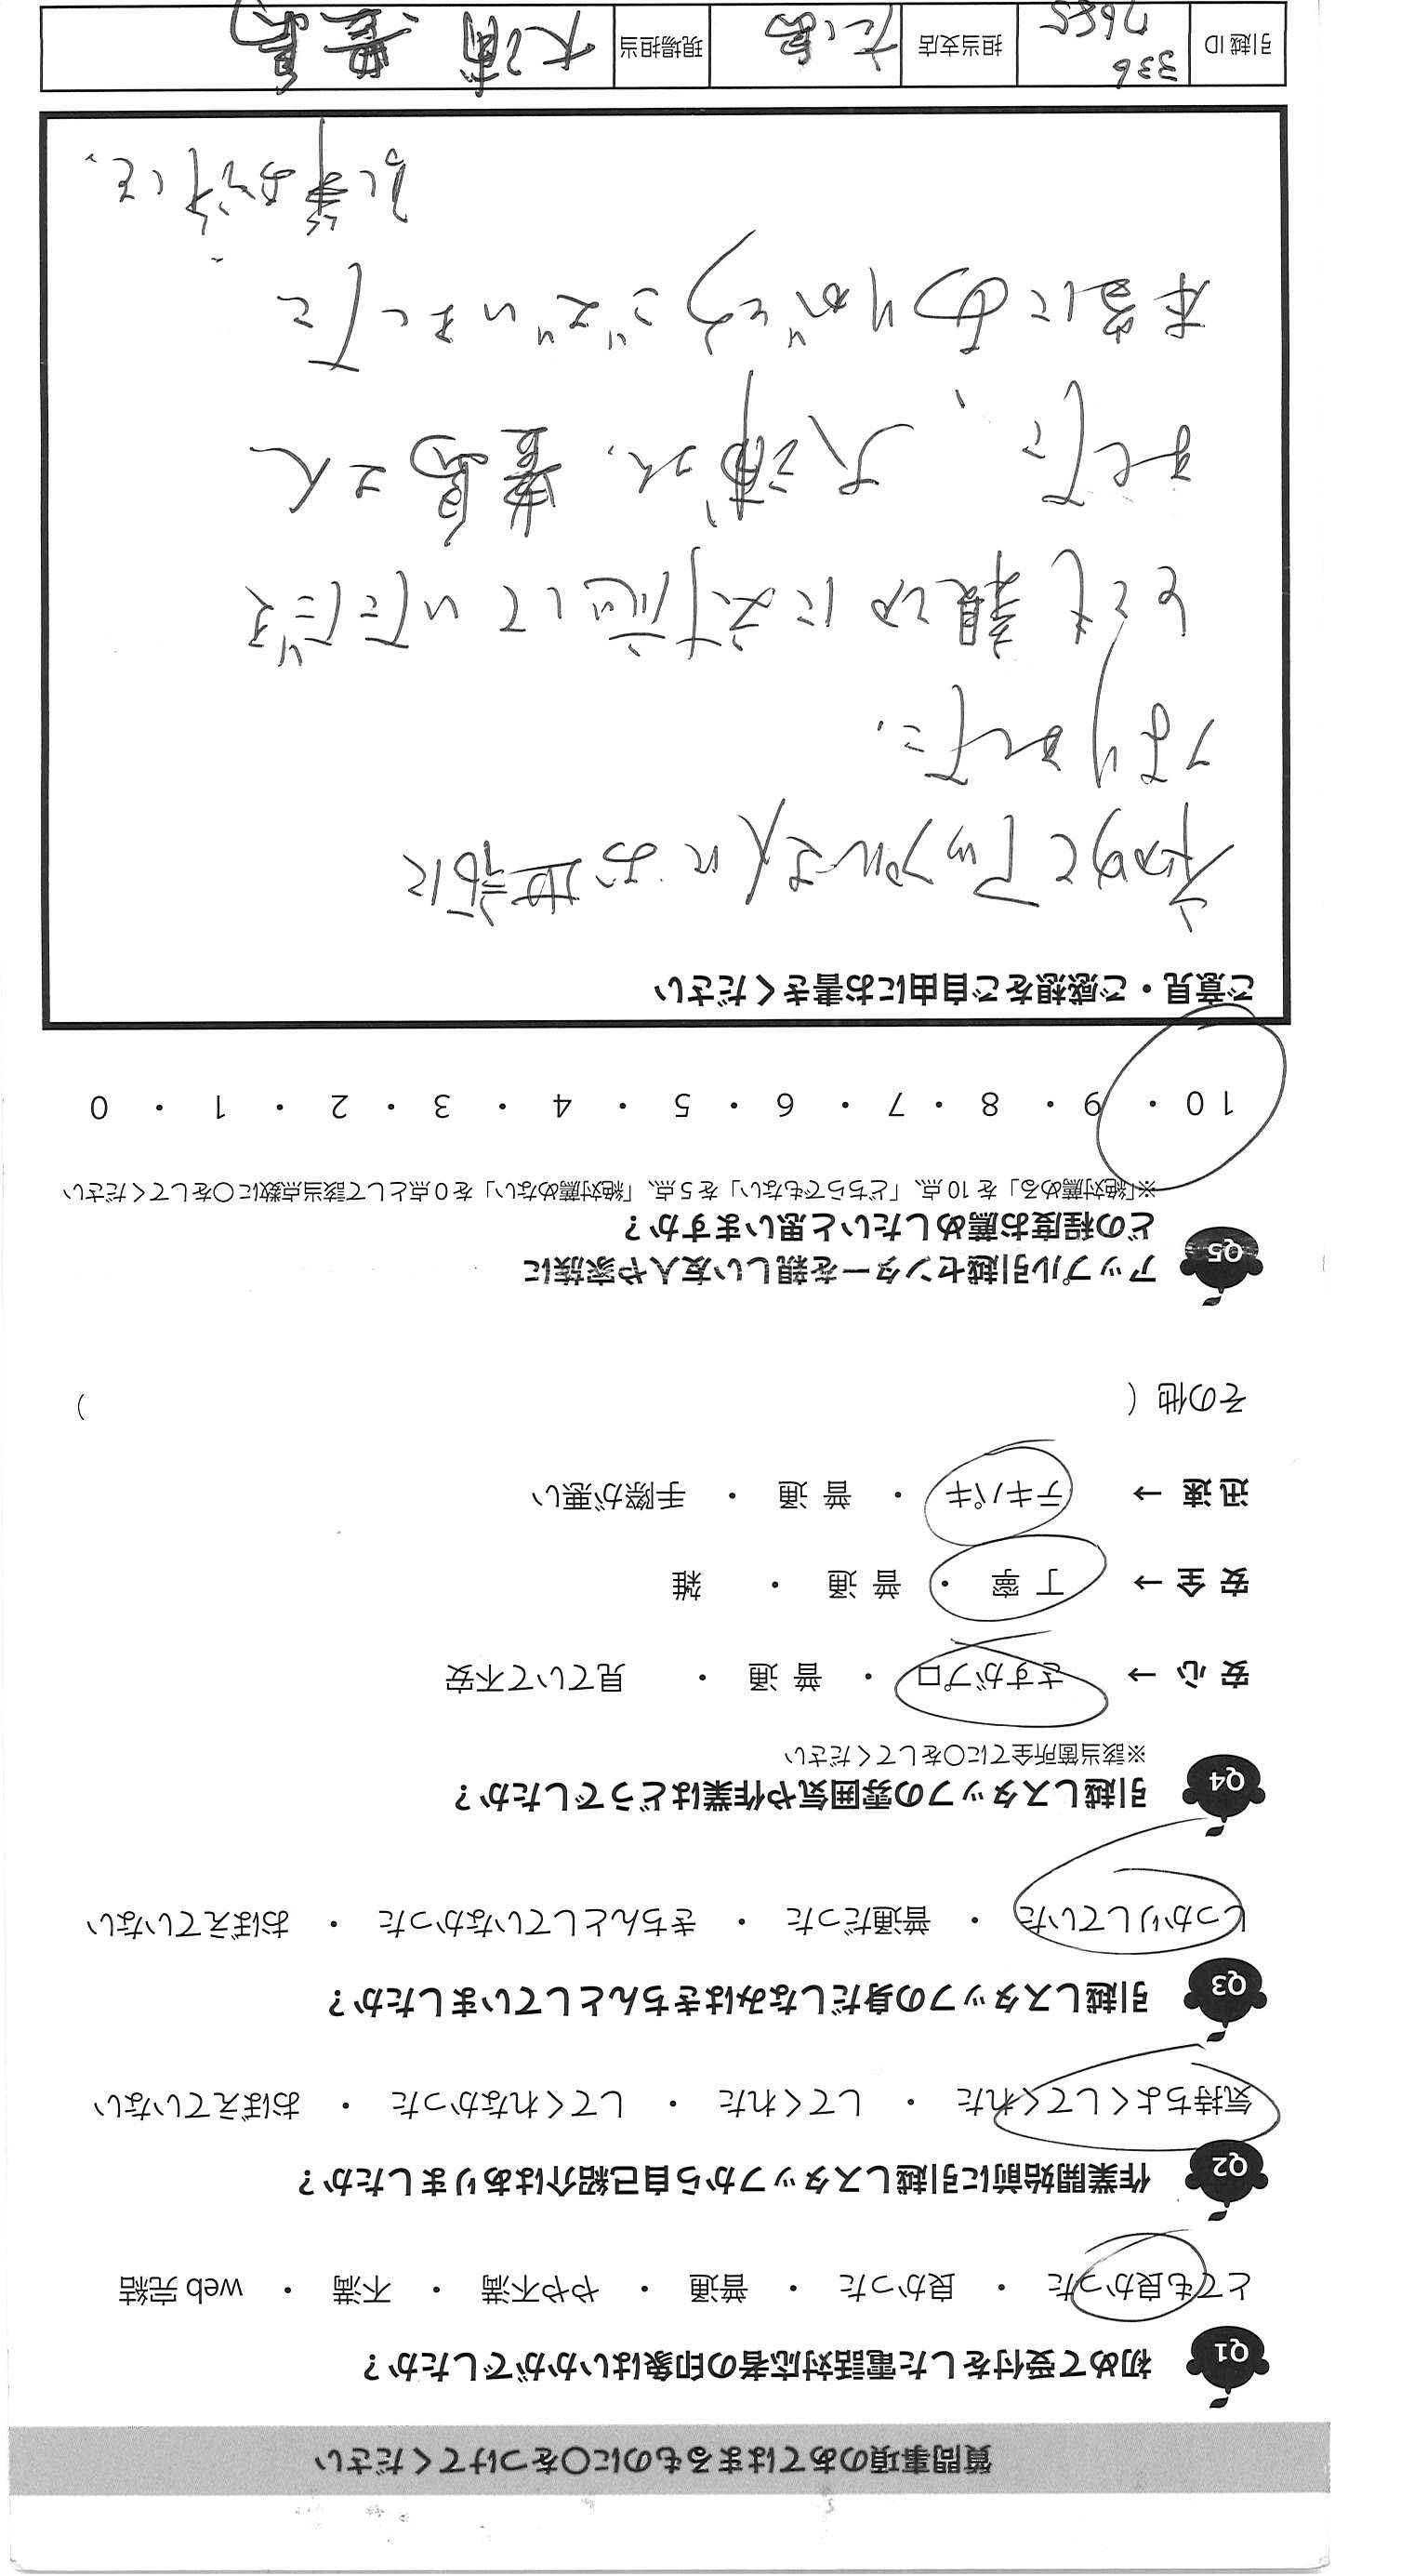 質問事項のあてはまるものに○をつけてください
Q1 初めて受付をした電話対応者の印象はいかがでしたか？
とても良かった ・ 良かった ・ 普通 ・ やや不満 ・ 不満 ・ web 完結
Q2 作業開始前に引越しスタッフから自己紹介はありましたか？
気持ちよくしてくれた ・ してくれた ・ してくれなかった ・ おぼえていない
Q3 引越しスタッフの身だしなみはきちんとしていましたか？
しっかりしていた ・ 普通だった ・ きちんとしていなかった ・ おぼえていない
Q4 引越しスタッフの雰囲気や作業はどうでしたか？
※該当箇所全てに○をしてください
安心 → さすがプロ ・ 普通 ・ 見ていて不安
安全 → 丁寧 ・ 普通 ・ 雑
迅速 → テキパキ ・ 普通 ・ 手際が悪い
その他 （ ）
Q5 アップル引越センターを親しい友人や家族に
どの程度お薦めしたいと思いますか？
※「絶対薦める」を 10 点、「どちらでもない」を 5 点、「絶対薦めない」を 0 点として該当点数に○をしてください
10 ・ 9 ・ 8 ・ 7 ・ 6 ・ 5 ・ 4 ・ 3 ・ 2 ・ 1 ・ 0
ご意見・ご感想をご自由にお書きください
初めてアップルさんにお世話に
なりました。
とても親切に対応していただき
ました、大浦さん、豊島さん
本当にありがとうございました
引越 ID 336 7685 担当支店 現場担当 大浦 豊島